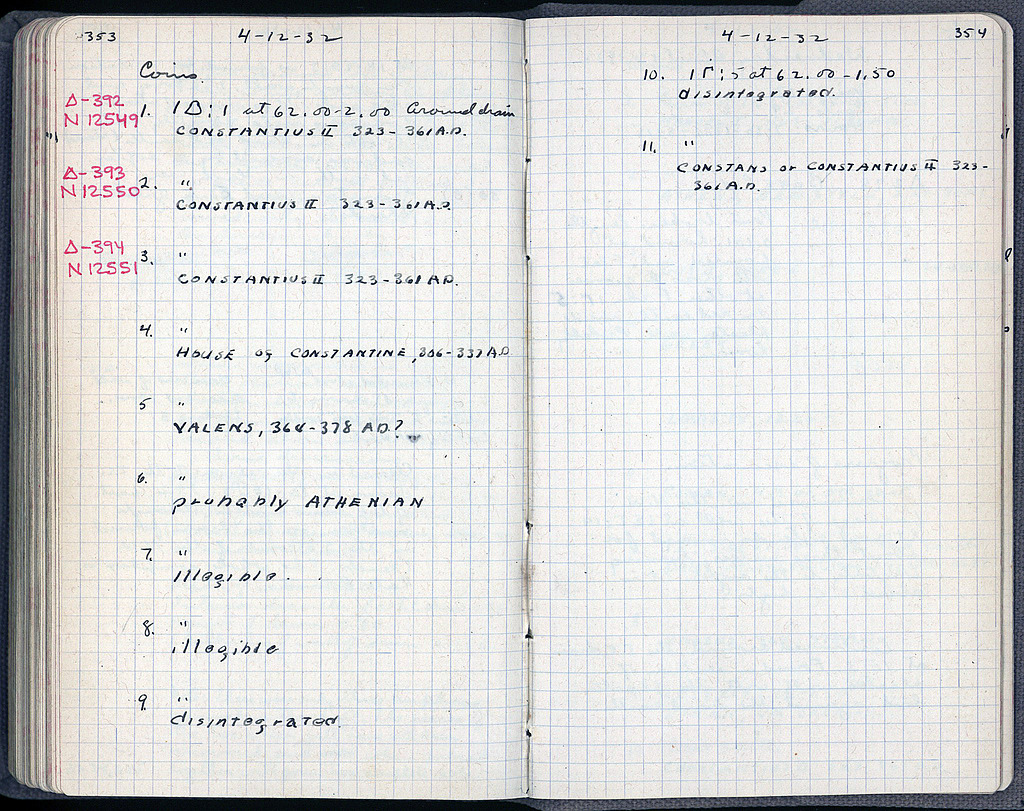 353
4-12-32
Coins.
Δ-392
N 12549
1. 1Δ:1 at 62.00-2.00 Around drain
CONSTANTIUS II 323-361 A.D.
Δ-393
N 12550
2. "
CONSTANTIUS II 323-361 A.D.
Δ-394
N 12551
3. "
CONSTANTIUS II 323-361 A.D.
4. "
HOUSE of CONSTANTINE, 306-337 A.D
5 "
VALENS, 364-378 A.D.?
6. "
probably ATHENIAN
7. "
illegible.
8. "
illegible
9. "
disintegrated.
4-12-32
354
10. 1Γ:5 at 62.00-1.50
disintegrated.
11. "
CONSTANS or CONSTANTIUS II 323-
361 A.D.